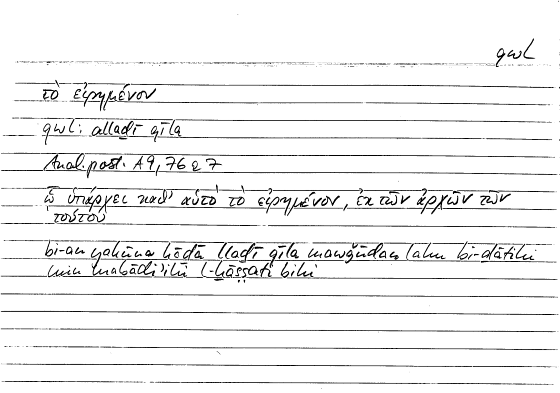 qwl
τὸ εἰρημένον
qwl: allaḏī qīla
Anal. post. A 9, 76 a 7
ᾧ ὑπάρχει καθ' αὑτὸ τὸ εἰρημένον, ἐκ τῶν ἀρχῶν τῶν
τούτου
bi-an yakūna hāḏā llaḏī qīla mawǧūdan lahu bi-ḏātihi
min mabādiʾihī l-ḫāṣṣati bihi